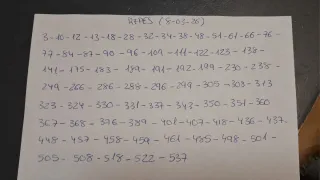 RTPES (8-03-26)
3-10-12-13-18-28-32-34-38-48-51-61-66-76-
77-84-87-90-96-109-111-122-123-138-
141-175-183-189-191-192-199-230-238-
249-266-286-288-296-299-305-303-313
323-324-330-331-337-343-350-351-360
367-368-376-389-401-407-418-436-437
448-457-458-459-461-485-498-501-
505-508-518-522-537